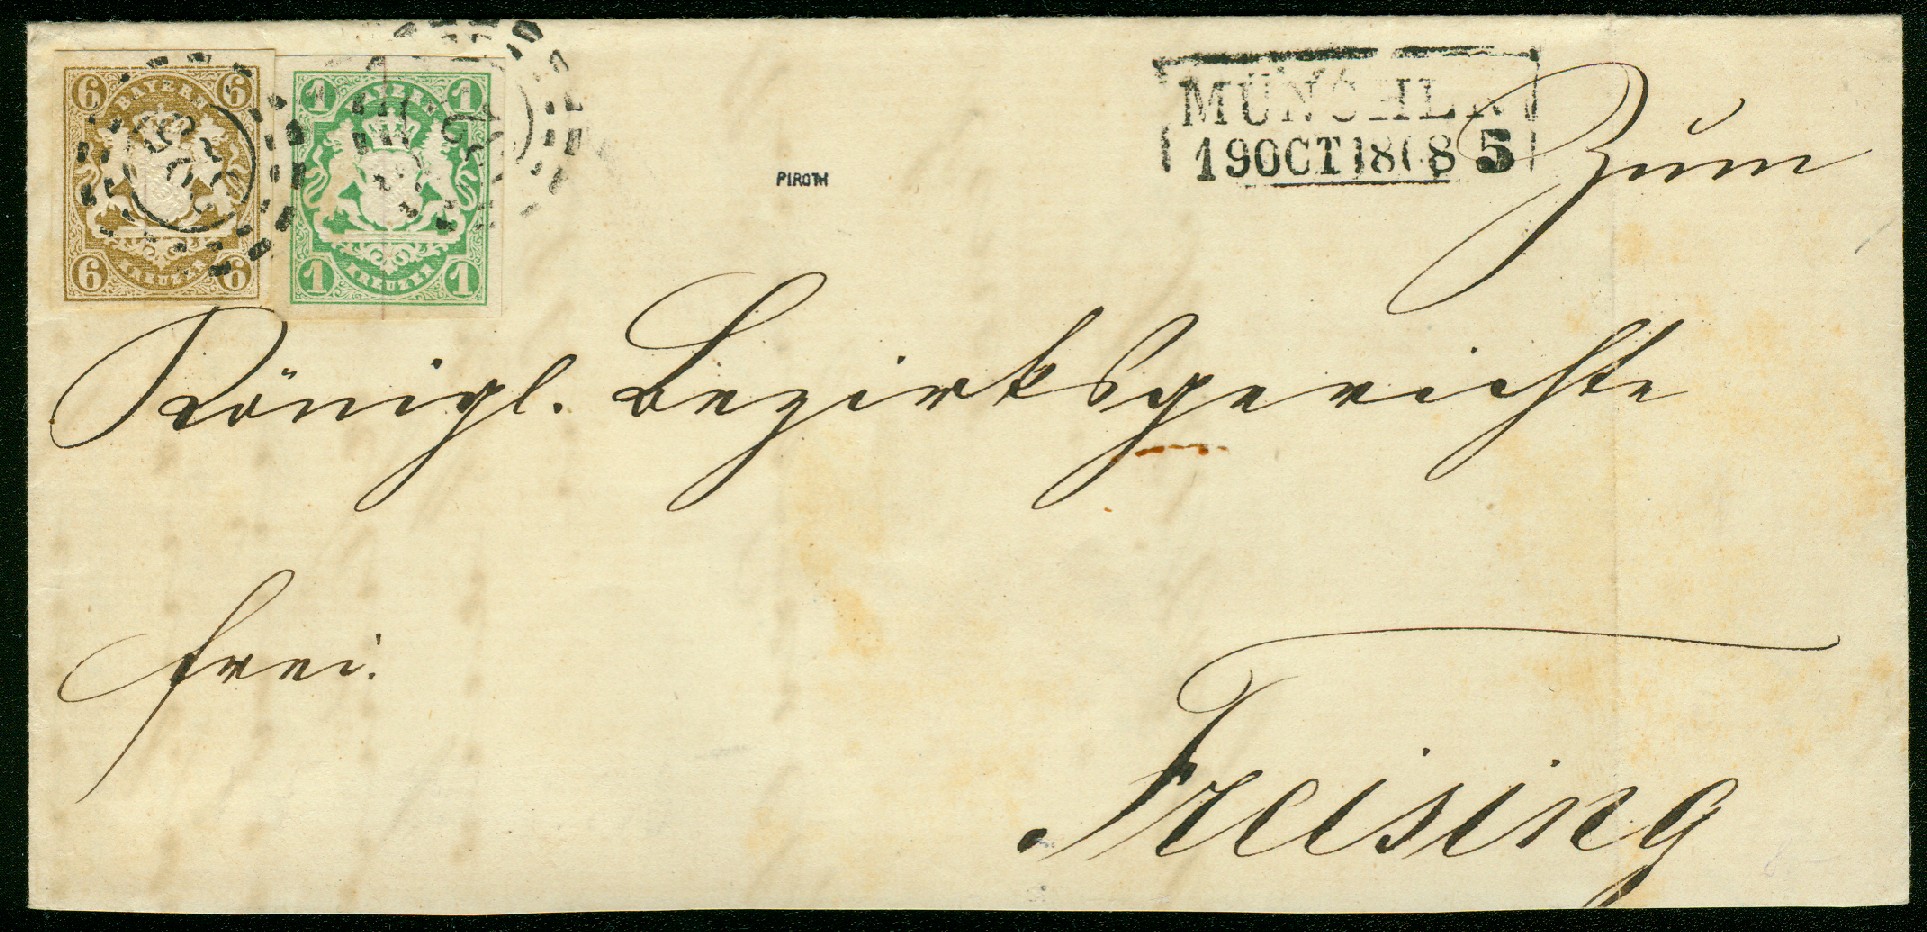 6 6
BAYERN
KREUZER
6 6
1 1
BAYERN
KREUZER
1 1
PIROTH
MÜNCHEN
19 OCT 1868 5
Zum
Königl. Bezirksgerichte
frei.
Freising